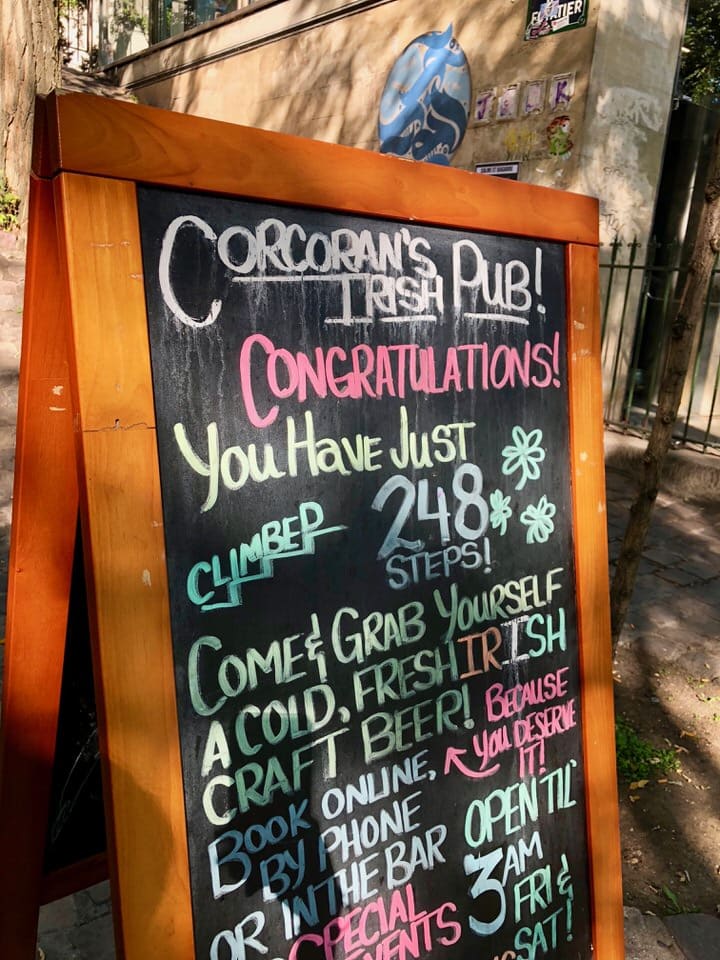 CORCORAN'S
IRISH PUB!
CONGRATULATIONS!
YOU HAVE JUST
CLIMBED 248
STEPS!
COME & GRAB YOURSELF
A COLD, FRESH IRISH
CRAFT BEER!
BECAUSE
YOU DESERVE
IT!
BOOK ONLINE,
BY PHONE
OR IN THE BAR
SPECIAL
OPEN TIL'
3AM
FRI &
SAT!